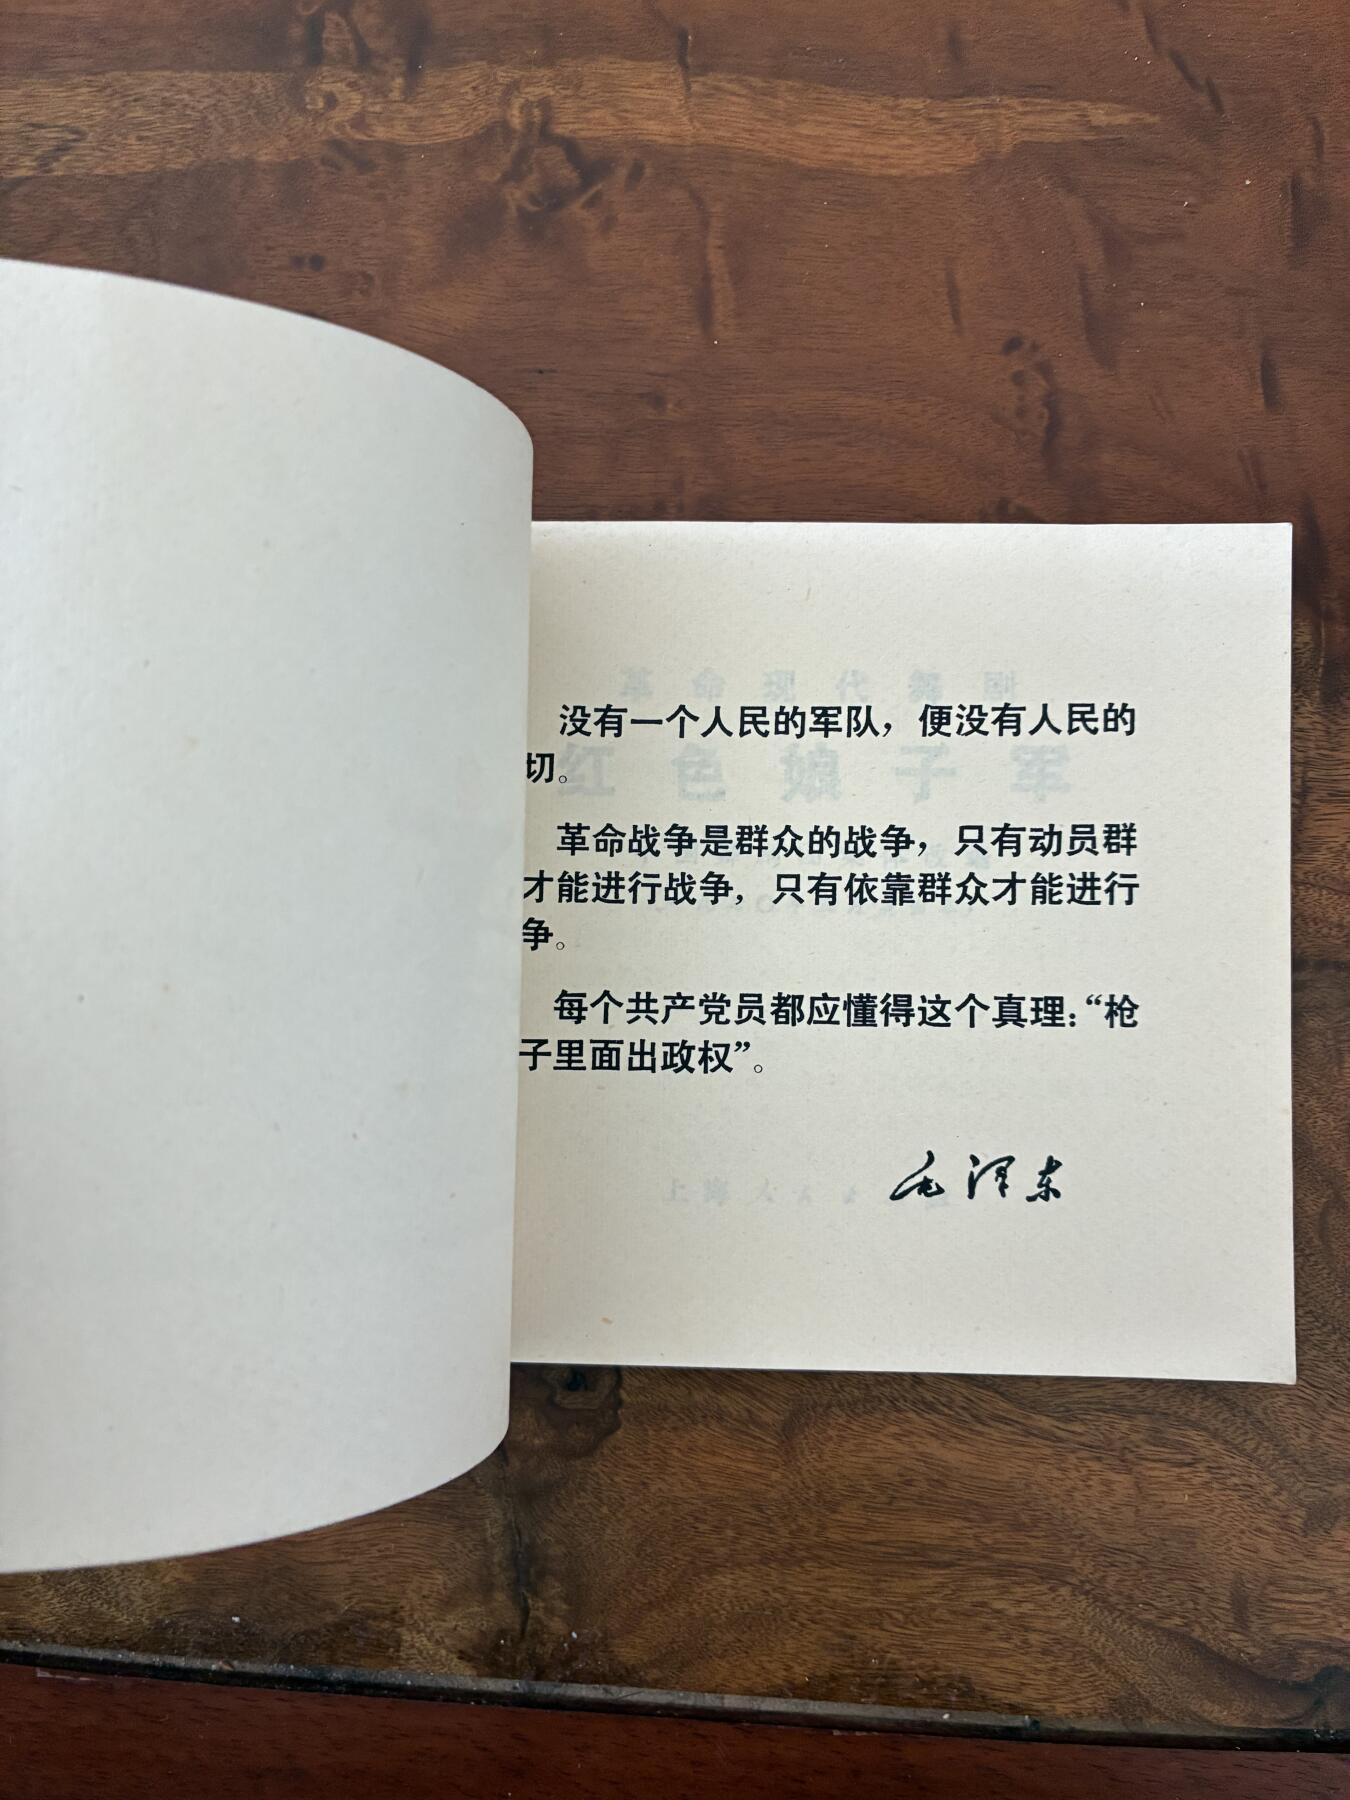 革命现代舞剧
没有一个人民的军队，便没有人民的
切。
红色娘子军
革命战争是群众的战争，只有动员群
才能进行战争，只有依靠群众才能进行
争。
每个共产党员都应懂得这个真理：“枪
子里面出政权”。
毛泽东
上海人